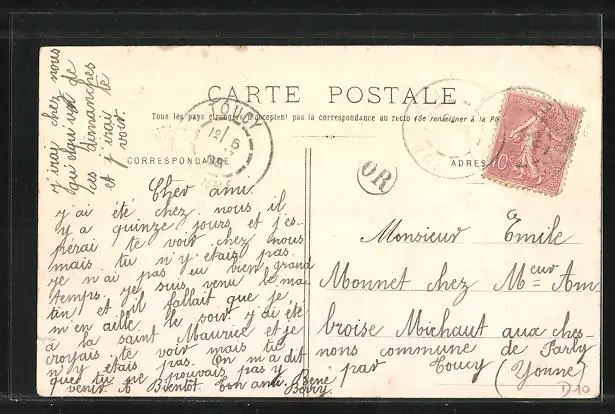 CARTE POSTALE
Tous les pays étrangers n'acceptent pas la correspondance au recto (Se renseigner à la Po
CORRESPONDANCE
ADRES
TOUCY
12 6
08
OR
10c
Cher ami
j'ai été chez nous il
y a quinze jours et j'es-
pérai te voir chez nous
mais tu n'y étais pas.
je n'ai pas eu bien grand
temps je suis venu le ma-
tin et il fallait que je
m'en aille le soir j'ai été
à la saint Maurice et je
croyais te voir mais tu
n'y étais pas. On m'a dit
que tu ne pouvais pas y
venir. à Bientôt. Ton ami René
Berry
y irai chez nous
de
ces dimanches
et j'irai te
voir
Monsieur Emile
Monnet chez Meur Am
broise Michaut aux ches-
nons commune de Parly
par Toucy (Yonne)
D10